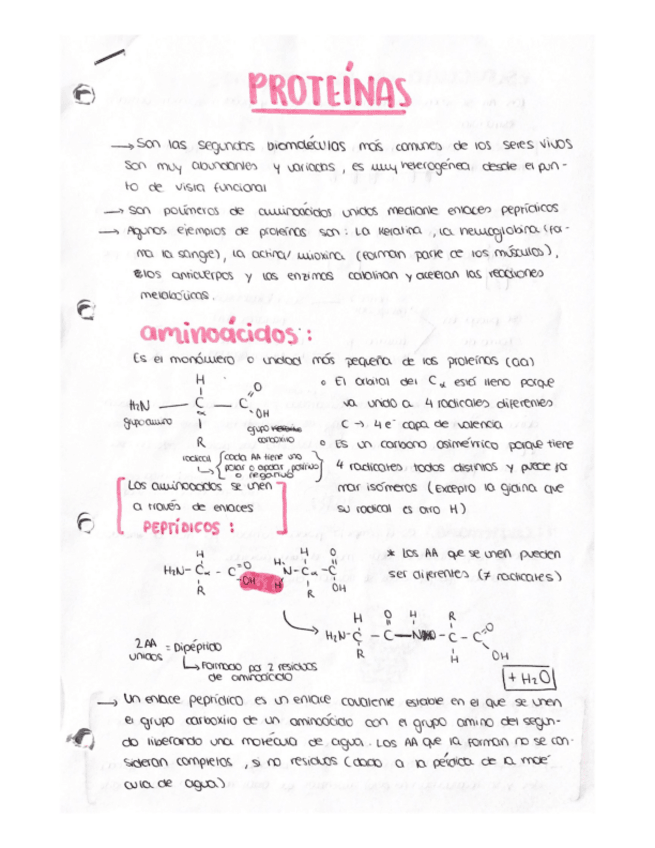 PROTEÍNAS
→ Son las segundas biomoléculas más comunes de los seres vivos
Son muy abundantes y variadas, es muy heterogénea desde el pun-
to de vista funcional
→ Son polímeros de aminoácidos unidos mediante enlaces peptídicos
→ Algunos ejemplos de proteínas son: La Keratina, la hemoglobina (for-
ma la sangre), la actina/miosina (forman parte de los músculos),
los anticuerpos y las enzimas catalizan y aceleran las reacciones
metabólicas.
aminoácidos:
Es el monómero o unidad más pequeña de las proteínas (aa)
H
H₂N — C — C
α
O
OH
grupo amino
grupo
carboxilo
R
radical
cada AA tiene uno
polar o apolar, positivo
o negativo
° El orbital del Cα está lleno porque
va unido a 4 radicales diferentes
C → 4 e⁻ capa de valencia
° Es un carbono asimétrico porque tiene
4 radicales todos distintos y puede for
mar isómeros (Excepto la glicina que
su radical es otro H)
Los aminoácidos se unen
a través de enlaces
PEPTÍDICOS:
H H O
H₂N - Cα - C =O H N - Cα - C
OH H OH
R R
* Los AA que se unen pueden
ser diferentes (≠ radicales)
H O H R
H₂N - C - C — N - C - C =O
R H OH
2 AA = Dipéptido
unidos
↳ Formado por 2 residuos
de aminoácido
+ H₂O
→ Un enlace peptídico es un enlace covalente estable en el que se unen
el grupo carboxilo de un aminoácido con el grupo amino del segun-
do liberando una molécula de agua. Los AA que la forman no se con-
sideran completos, si no residuos (dado a la pédica de la molé
cula de agua)